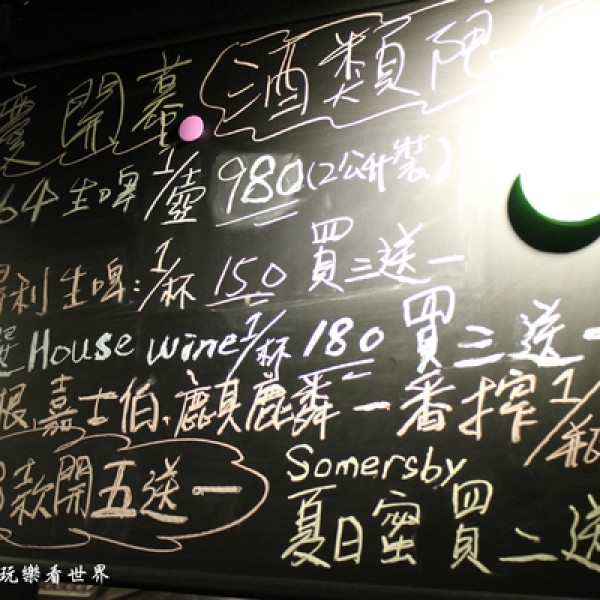 慶開幕 酒類限
64生啤 1/壺 980(2公升裝)
得利生啤:1/杯 150 買三送一
選House wine 1/杯 180 買三送一
根嘉士伯、麒麟一番搾 1/瓶
3款開五送一
Somersby
夏日蜜買二送
玩樂看世界